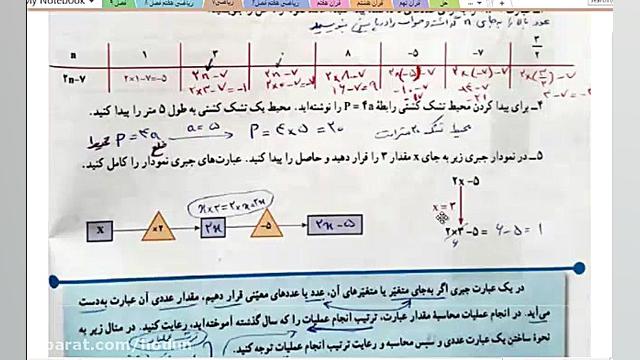 عدد بالا را به‌جای n گذاشته و جواب را در پایین بنویسید
n | ۱ | ۳ | ۰ | ۸ | -۵ | -۷ | ۳/۲
۲n-۷ | ۲×۱-۷=-۵ | ۲n-۷ ۲×۳-۷=-۱ | ۲n-۷ ۲×۰-۷=-۷ | ۲×۸-۷ ۱۶-۷=۹ | ۲×(-۵)-۷ | ۲×(-۷)-۷ | ۲×(۳/۲)-۷
۴ـ برای پیدا کردن محیط تشک کشتی رابطهٔ P = ۴a را نوشته‌اند. محیط یک تشک کشتی به طول ۵ متر را پیدا کنید.
P=۴a a=۵ P=۴×۵=۲۰ محیط تشک ۲۰ متر است
ضلع
۵ـ در نمودار جبری زیر به جای x مقدار ۳ را قرار دهید و حاصل را پیدا کنید. عبارت‌های جبری نمودار را کامل کنید.
x×۲=۲×x=۲x
۲x -۵
x = ۳
x ×۲ ۲x -۵ ۲x-۵
۲×۳ -۵ = ۶-۵=۱
۶
در یک عبارت جبری اگر به‌جای متغیّر یا متغیّرهای آن، عدد یا عددهای معیّنی قرار دهیم، مقدار عددی آن عبارت به‌دست
می‌آید. در انجام عملیات محاسبهٔ مقدار عبارت، ترتیب انجام عملیات را که سال گذشته آموخته‌اید، رعایت کنید. در مثال زیر به
نحوهٔ ساختن یک عبارت عددی و سپس محاسبه و رعایت ترتیب انجام عملیات توجه کنید.